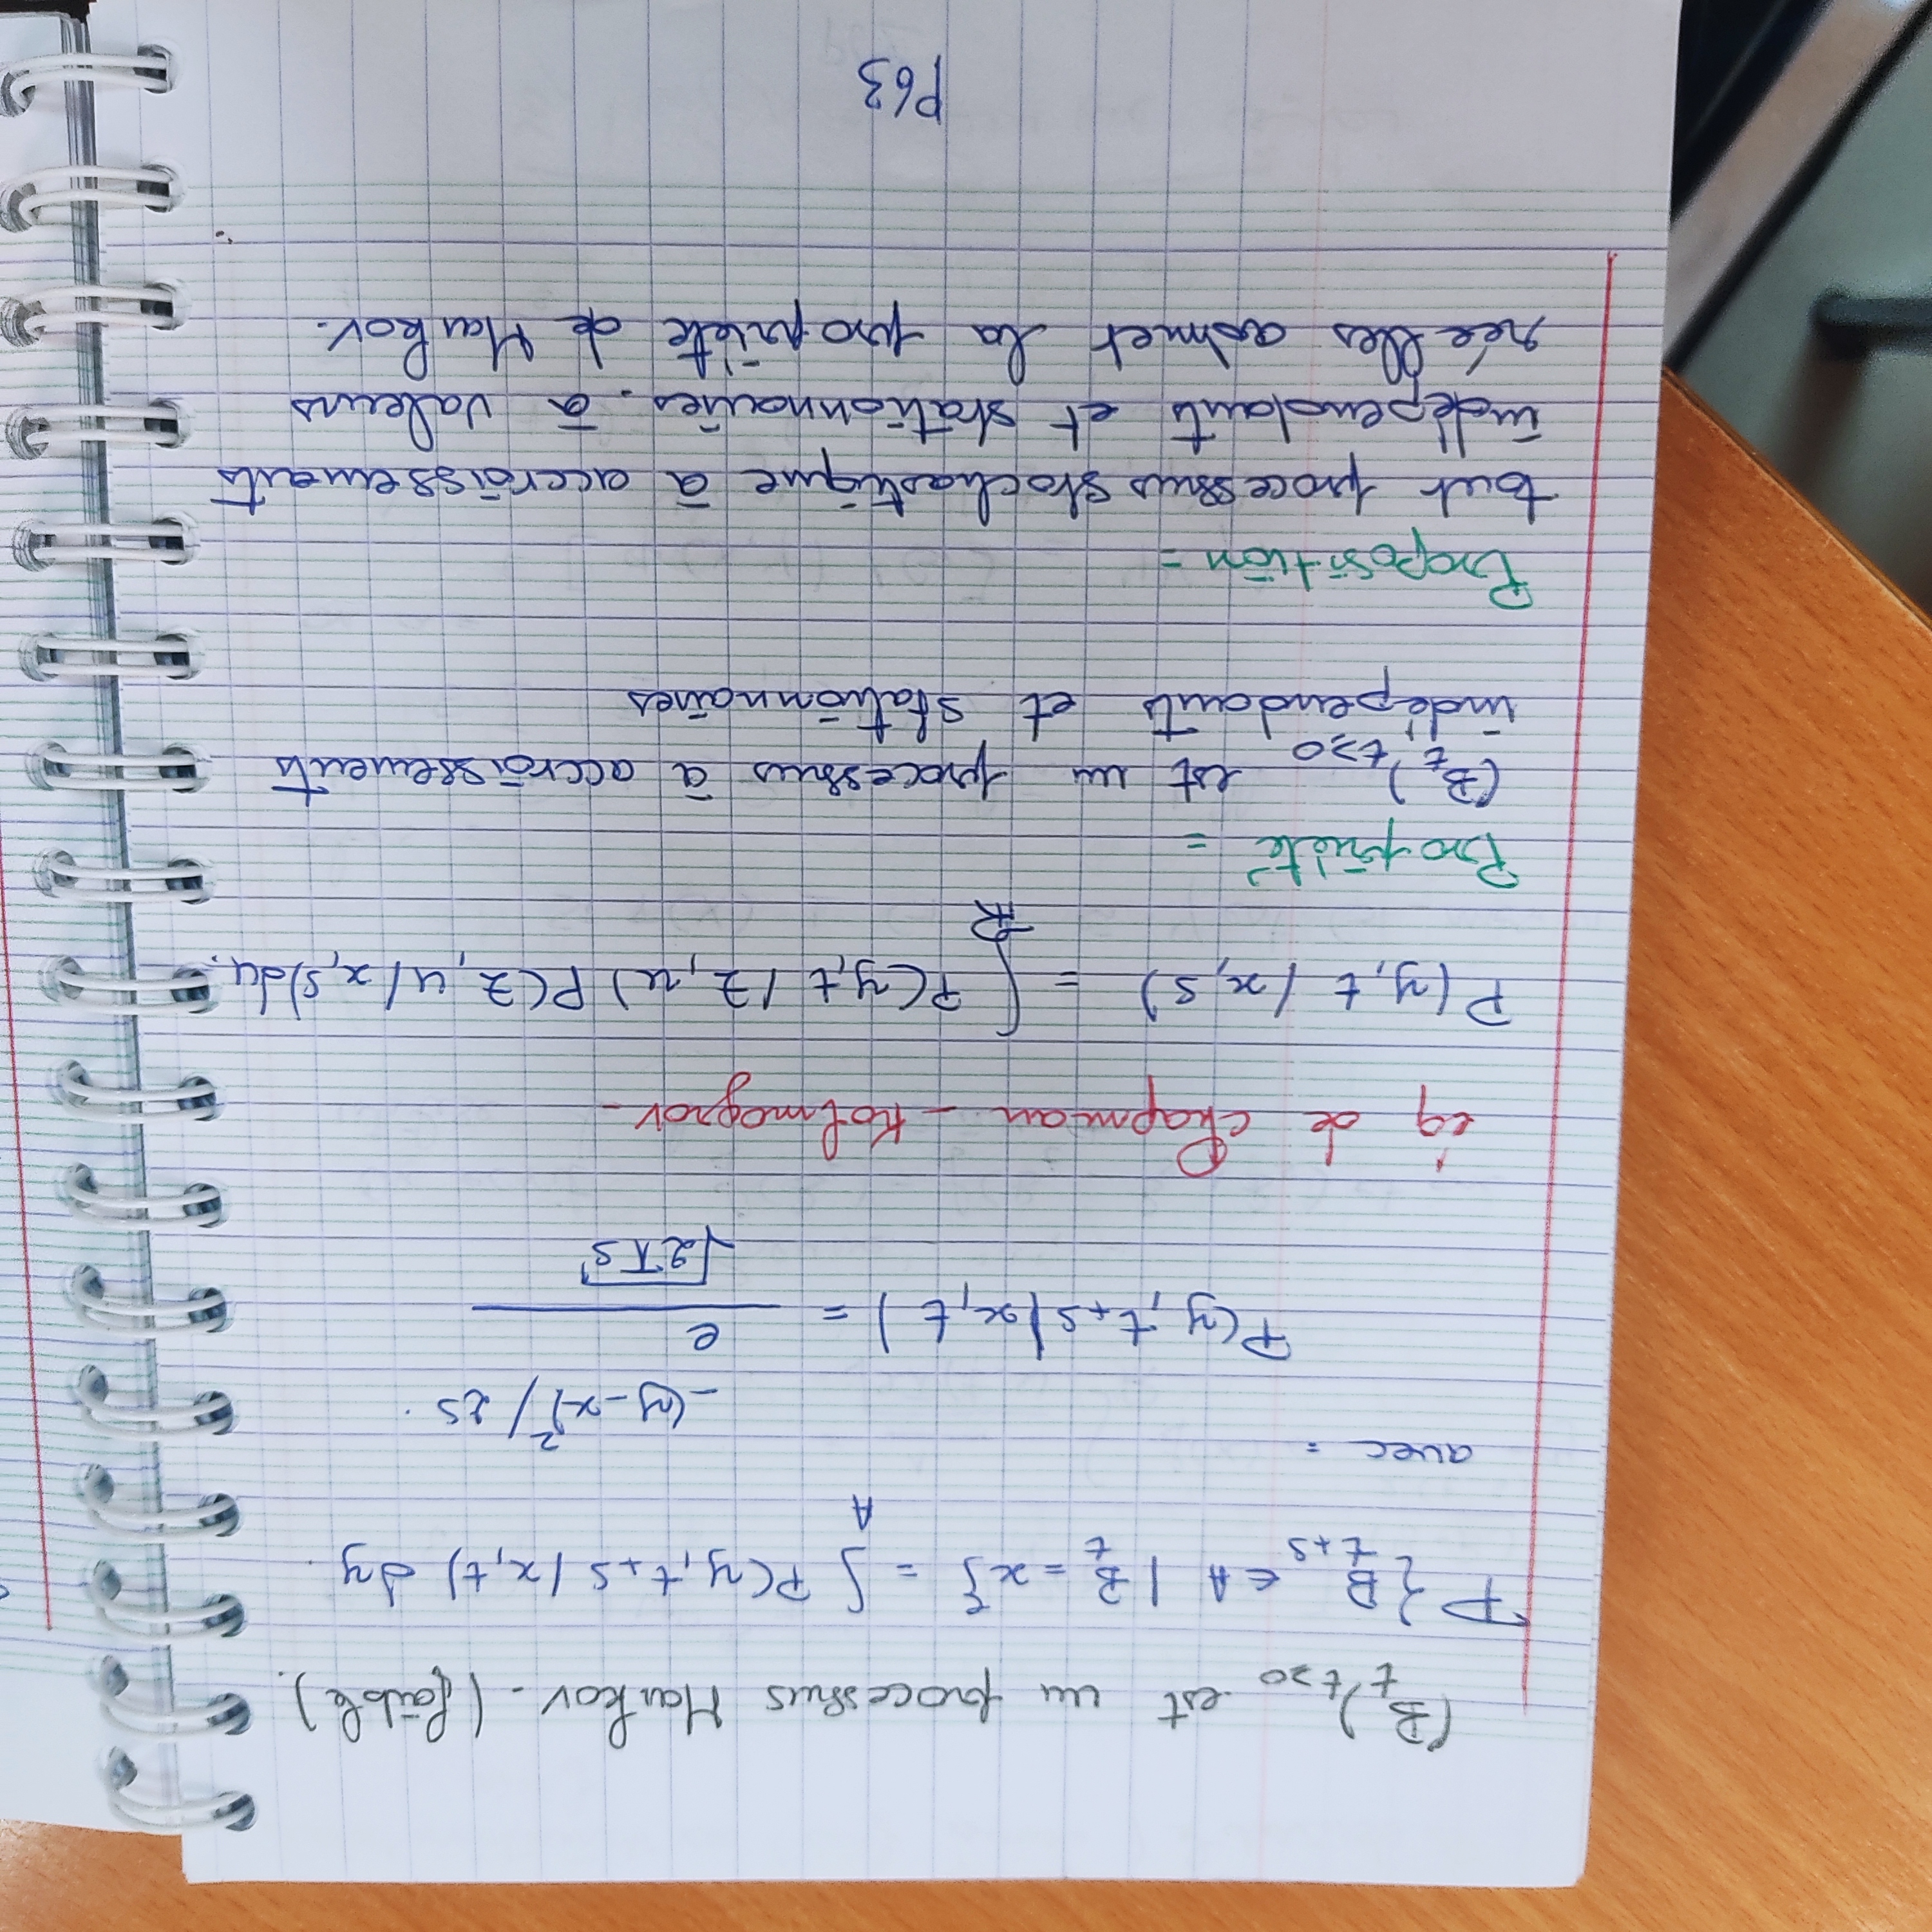 (B_t)_{t≥0} est un processus Markov - (faible).
P { B_{t+s} ∈ A | B_t = x } = ∫_A P(y, t+s / x, t) dy.
avec :
P(y, t+s | x, t) = e^{-(y-x)²/2s} / √(2πs)
éq de chapman - Kolmogrov -
P(y, t / x, s) = ∫_ℝ P(y, t / Z, u) P(Z, u / x, s) du.
Propriété =
(B_t)_{t≥0} est un processus à accroissements
indépendants et stationnaires
Proposition =
tout processus stochastique à accroissements
indépendants et stationnaires. à valeurs
réelles admet la propriète de Markov.
P63